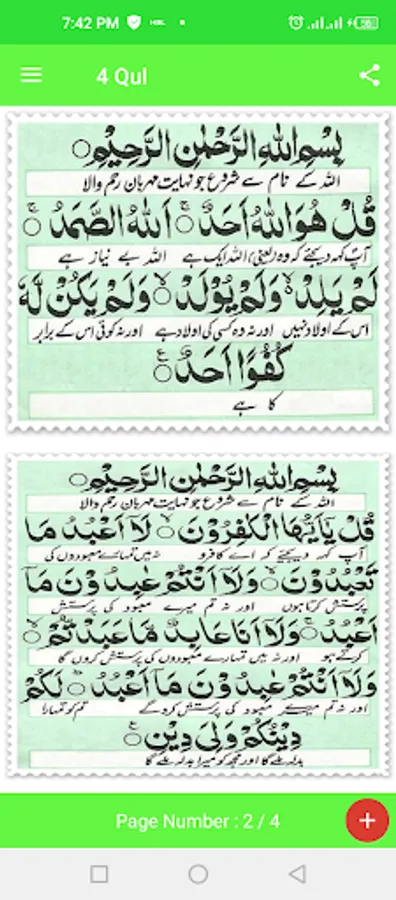 7:42 PM
4 Qul
بِسْمِ اللهِ الرَّحْمٰنِ الرَّحِيْمِ
اللہ کے نام سے شروع جو نہایت مہربان رحم والا
قُلْ هُوَ اللهُ اَحَدٌ ۚ اَللهُ الصَّمَدُ ۚ
آپ کہہ دیجئے کہ وہ (یعنی) اللہ ایک ہے اللہ بے نیاز ہے
لَمْ يَلِدْ ۙ وَلَمْ يُوْلَدْ ۙ وَلَمْ يَكُنْ لَّهٗ
اس کے اولاد نہیں اور نہ وہ کسی کی اولاد ہے اور نہ کوئی اس کے برابر
كُفُوًا اَحَدٌ
کا ہے
بِسْمِ اللهِ الرَّحْمٰنِ الرَّحِيْمِ
اللہ کے نام سے شروع جو نہایت مہربان رحم والا
قُلْ يٰٓاَيُّهَا الْكٰفِرُوْنَ ۙ لَآ اَعْبُدُ مَا
آپ کہہ دیجئے کہ اے کافرو نہ میں تمہارے معبودوں کی
تَعْبُدُوْنَ ۙ وَلَآ اَنْتُمْ عٰبِدُوْنَ مَآ
پرستش کرتا ہوں اور نہ تم میرے معبود کی پرستش
اَعْبُدُ ۚ وَلَآ اَنَا عَابِدٌ مَّا عَبَدْتُّمْ ۙ
کرتے ہو اور نہ میں تمہارے معبودوں کی پرستش کروں گا
وَلَآ اَنْتُمْ عٰبِدُوْنَ مَآ اَعْبُدُ ۗ لَكُمْ
اور نہ تم میرے معبود کی پرستش کرو گے تم کو تمہارا
دِيْنُكُمْ وَلِيَ دِيْنِ
بدلہ ملے گا اور مجھ کو میرا بدلہ ملے گا
Page Number : 2 / 4